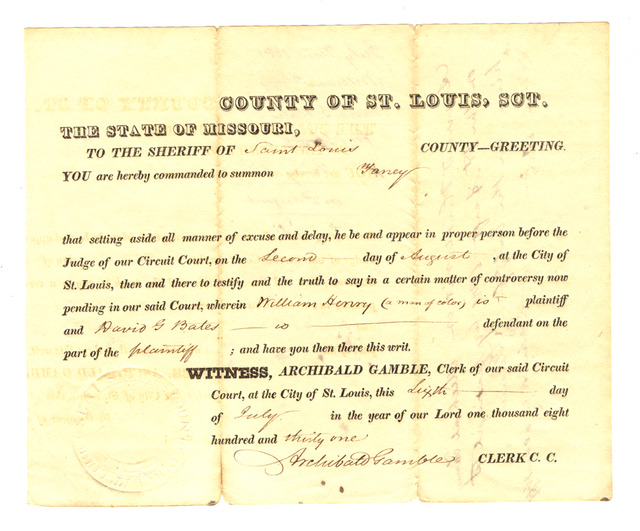 COUNTY OF ST. LOUIS, SCT.
THE STATE OF MISSOURI,
TO THE SHERIFF OF Saint Louis COUNTY—GREETING.
YOU are hereby commanded to summon Faney
that setting aside all manner of excuse and delay, he be and appear in proper person before the
Judge of our Circuit Court, on the Second day of August, at the City of
St. Louis, then and there to testify and the truth to say in a certain matter of controversy now
pending in our said Court, wherein William Henry (a man of color) is plaintiff
and David G Bates is defendant on the
part of the plaintiff ; and have you then there this writ.
WITNESS, ARCHIBALD GAMBLE, Clerk of our said Circuit
Court, at the City of St. Louis, this Sixth day
of July in the year of our Lord one thousand eight
hundred and thirty one
Archibald Gamble CLERK C. C.